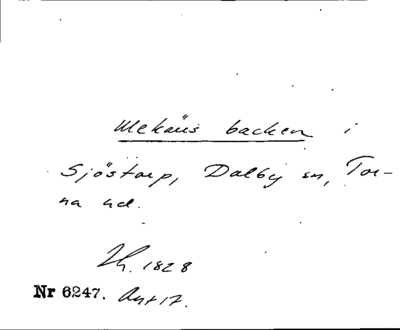 Mekäns backen i
Sjöstorp, Dalby sn, Tor-
na hd.
Lh. 1828
Nr 6247. Ant 17.